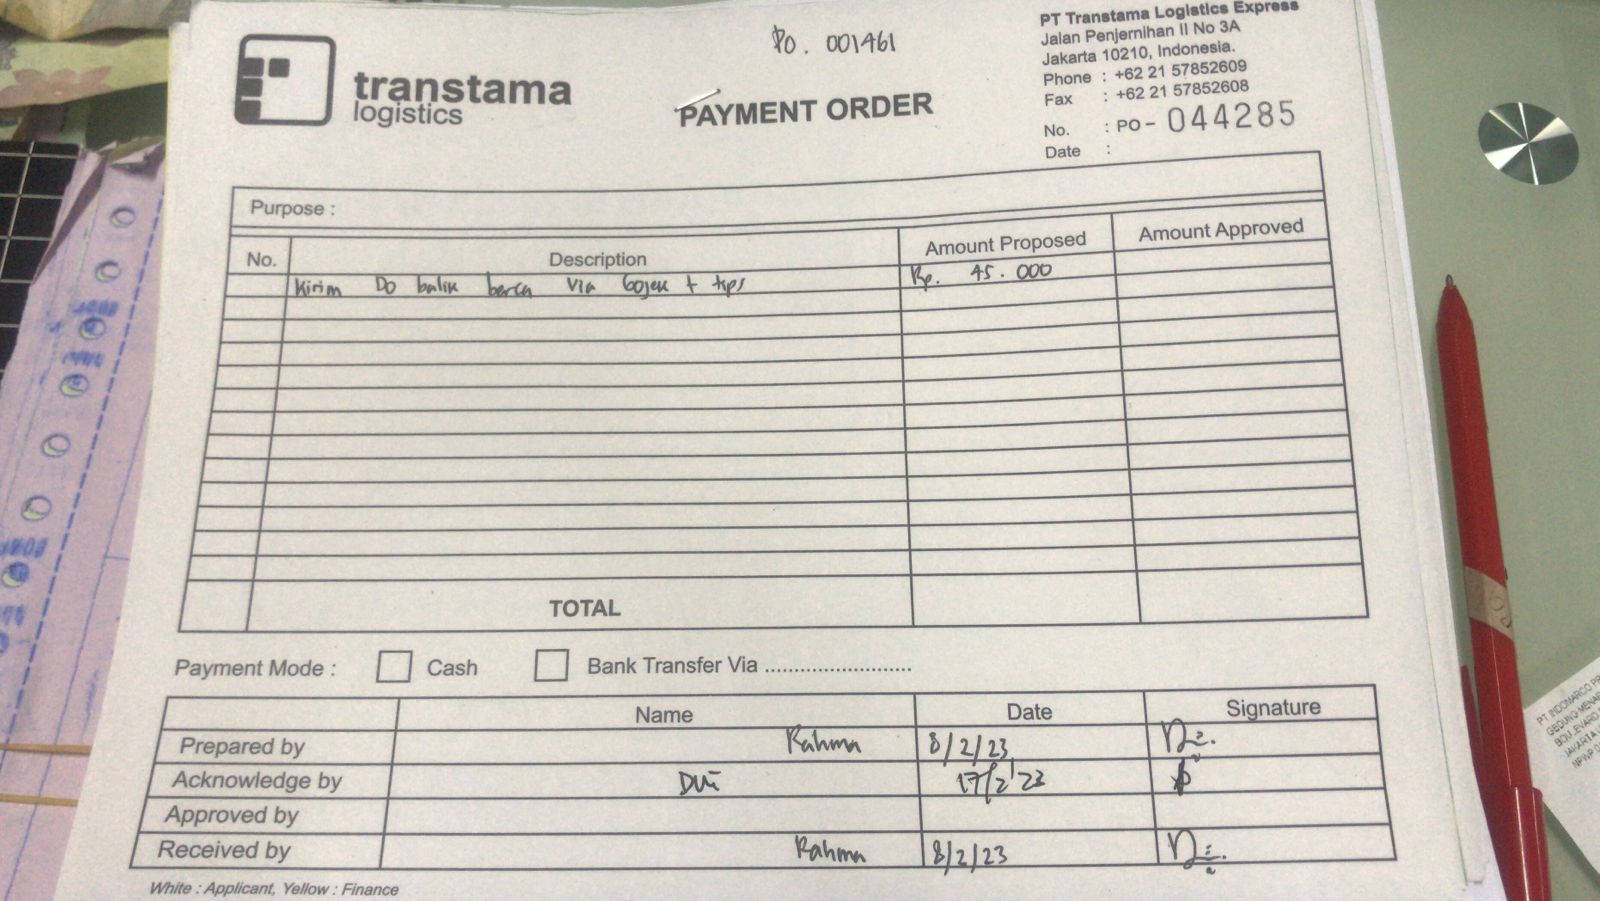 PO. 001461
transtama
logistics
PAYMENT ORDER
PT Transtama Logistics Express
Jalan Penjernihan II No 3A
Jakarta 10210, Indonesia.
Phone : +62 21 57852609
Fax : +62 21 57852608
No. : PO - 044285
Date :
Purpose :
No. Description Amount Proposed Amount Approved
Kirim Do balik berca via Gojek + tips Rp. 45.000
TOTAL
Payment Mode : Cash Bank Transfer Via ..........................
Name Date Signature
Prepared by Rahma 8/2/23
Acknowledge by Dwi 17/2/23
Approved by
Received by Rahma 8/2/23
White : Applicant, Yellow : Finance
PT INDOMARCO PR
GEDUNG MENA
BOULEVARD
JAKARTA
NPWP 0